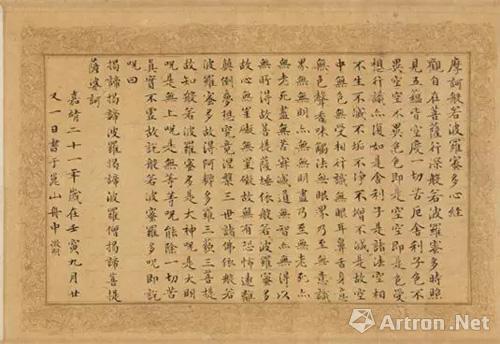 摩訶般若波羅蜜多心經
觀自在菩薩行深般若波羅蜜多時照
見五蘊皆空度一切苦厄舍利子色不
異空空不異色色即是空空即是色受
想行識亦復如是舍利子是諸法空相
不生不滅不垢不淨不增不減是故空
中無色無受相行識無眼耳鼻舌身意
無色聲香味觸法無眼界乃至無意識
界無無明亦無無明盡乃至無老死亦
無老死盡無苦集滅道無智亦無得以
無所得故菩提薩埵依般若波羅蜜多
故心無罣礙無罣礙故無有恐怖遠離
顛倒夢想究竟涅槃三世諸佛依般若
波羅蜜多故得阿耨多羅三藐三菩提
故知般若波羅蜜多是大神呪是大明
呪是無上呪是無等等呪能除一切苦
真實不虛故說般若波羅蜜多呪即說
呪曰
揭諦揭諦波羅揭諦波羅僧揭諦菩提
薩婆訶
嘉靖二十一年歲在壬寅九月廿
又一日書于崑山舟中 徵明
Artron.Net
雅昌艺术网